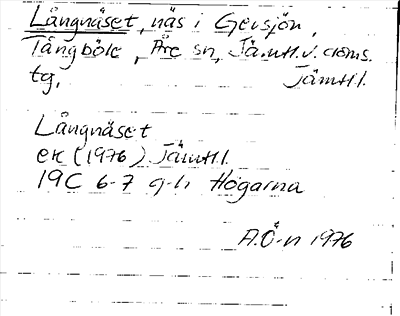 Långnäset, näs i Gevsjön,
Tångböle, Åre sn, Jämtl. v. doms.
tg, Jämtl.
Långnäset
ek (1976) Jämtl.
19C 6-7 g-h Högarna
A.Ö-n 1976